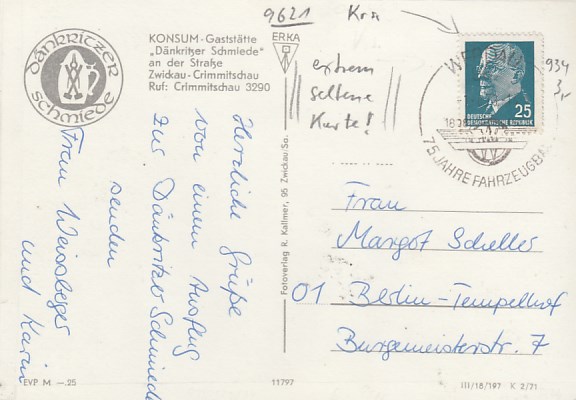 Dänkritzer
Schmiede
KONSUM-Gaststätte
„Dänkritzer Schmiede“
an der Straße
Zwickau-Crimmitschau
Ruf: Crimmitschau 3290
ERKA
9621
extrem
seltene
Karte!
934
3,-
25
DEUTSCHE
DEMOKRATISCHE REPUBLIK
75 JAHRE FAHRZEUGBA
Herzliche Grüße
von einem Ausflug
zur Dänkritzer Schmiede
senden
Frau Weissberger
und Karin
Fotoverlag R. Kallmer, 95 Zwickau/Sa.
Frau
Margot Scheller
01 Berlin-Tempelhof
Burgemeisterstr. 7
EVP M -.25
11797
III/18/197 K 2/71